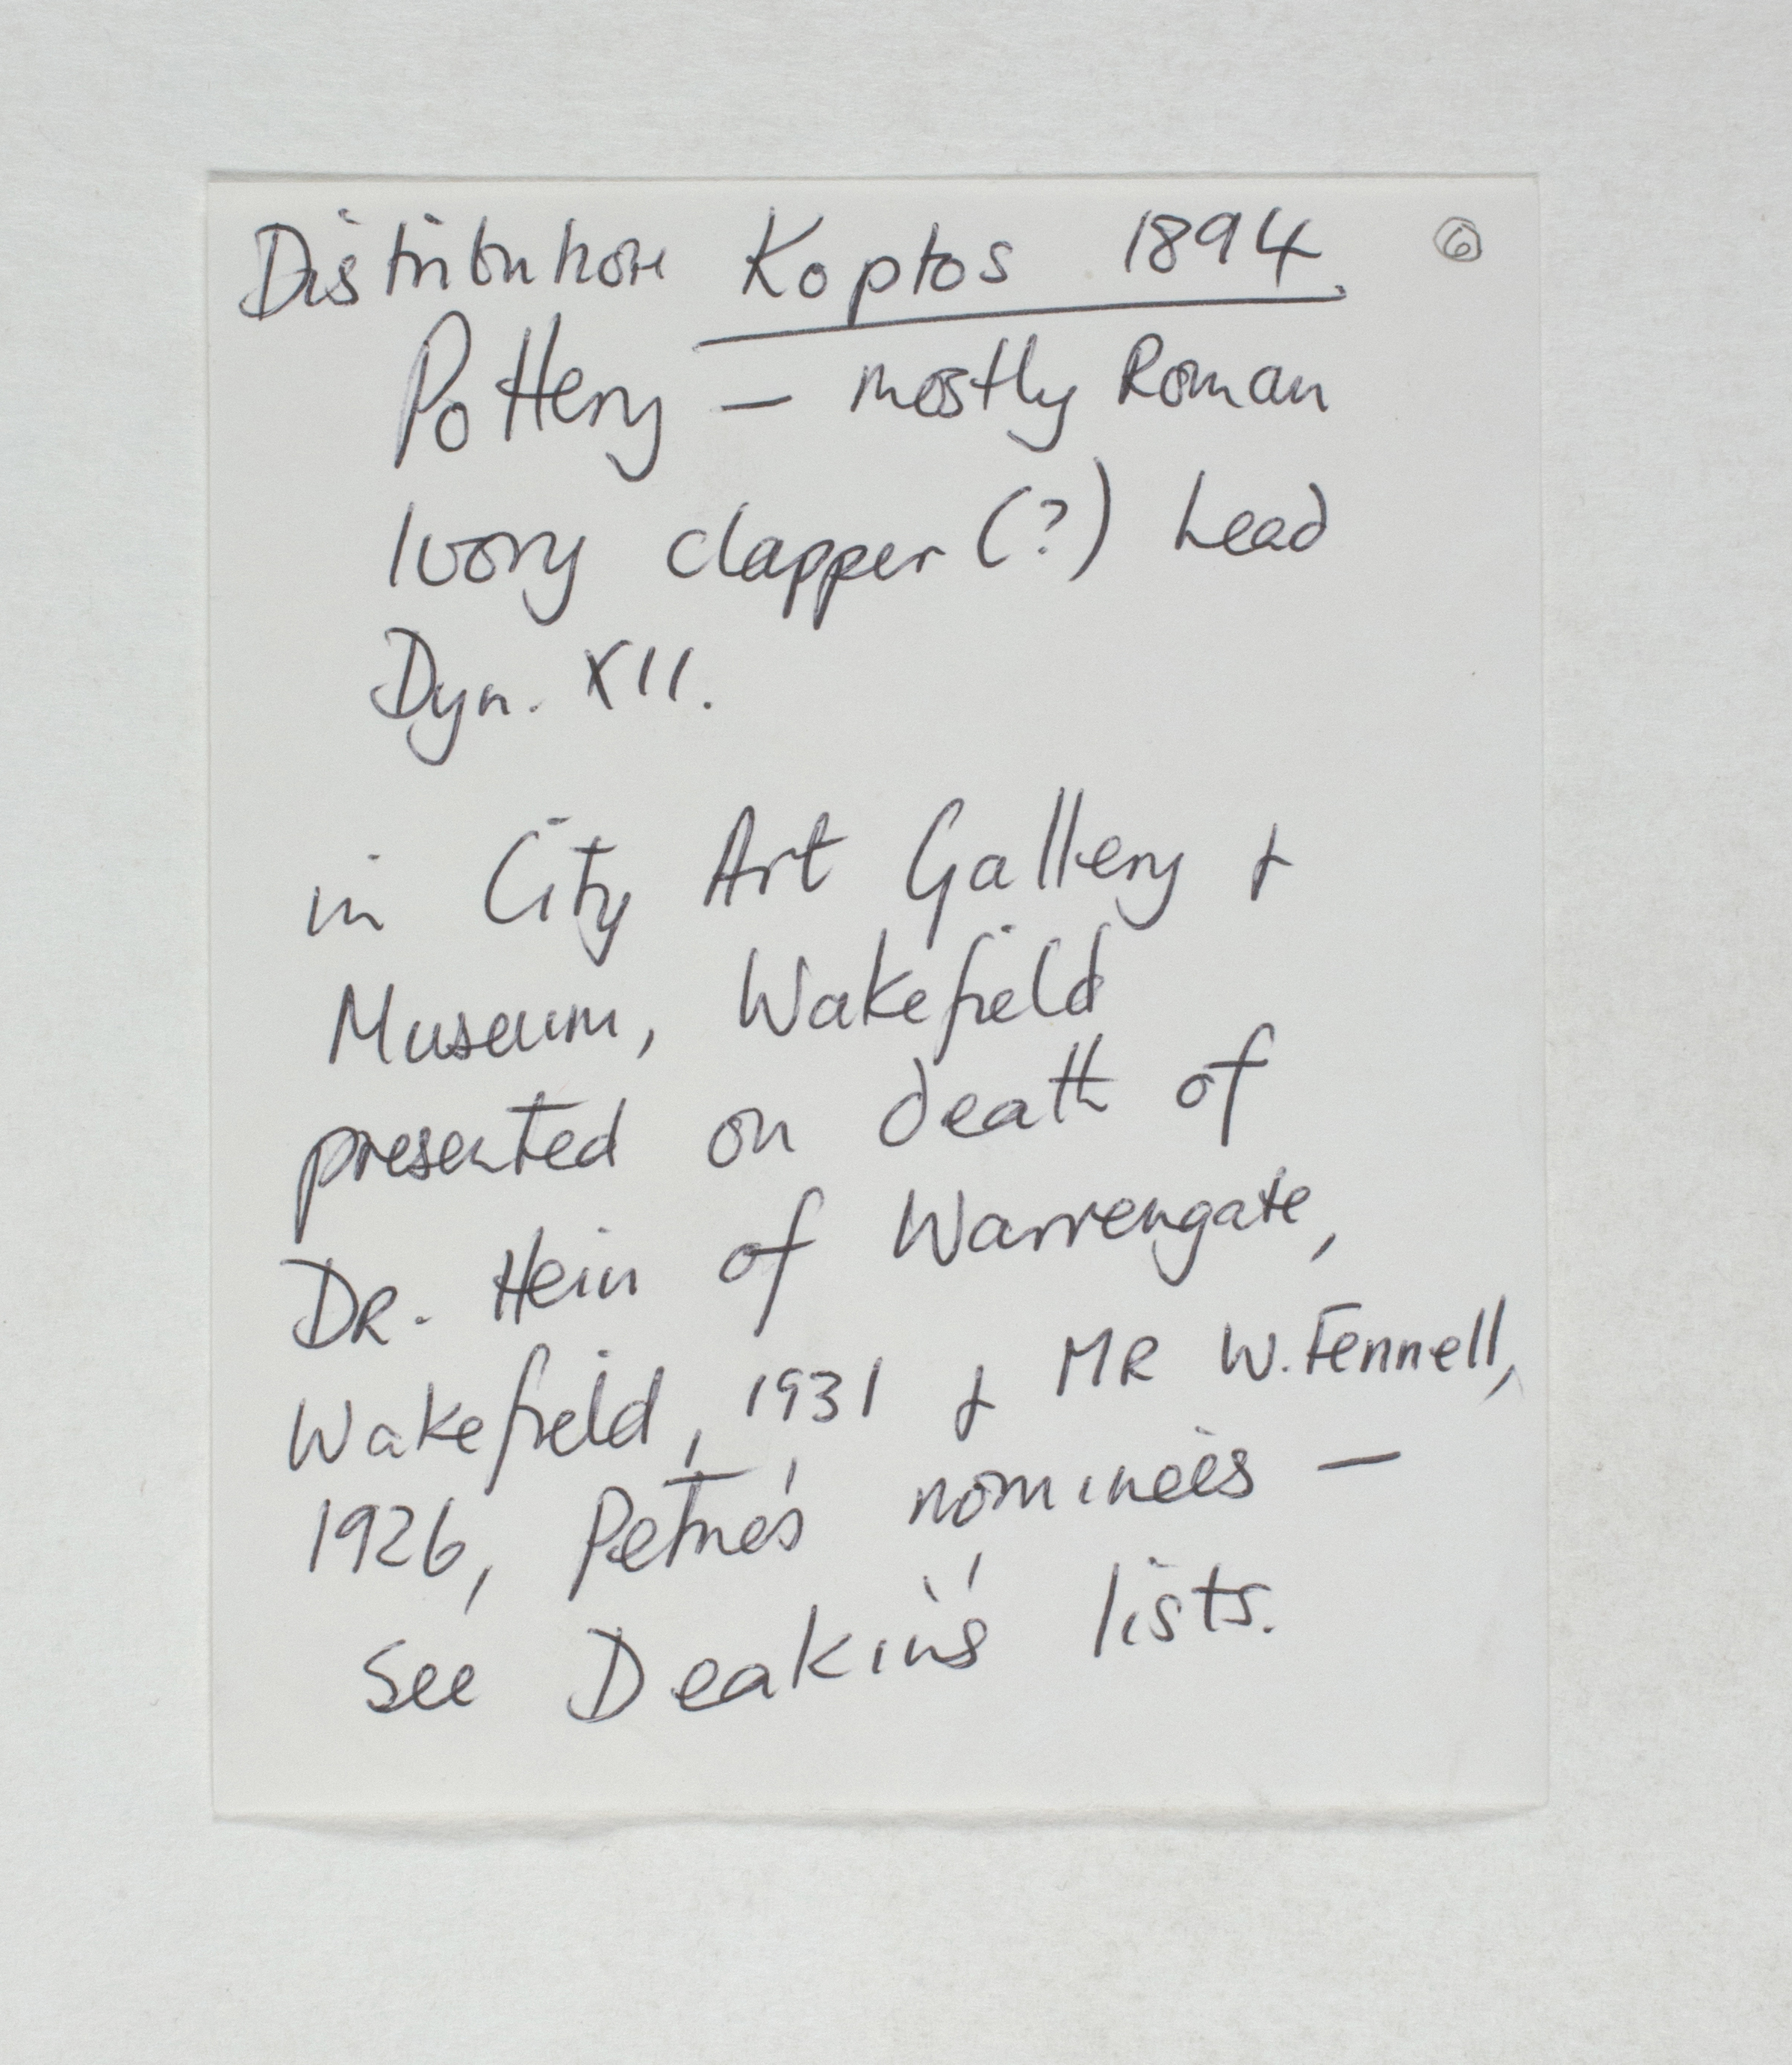 Distribution Koptos 1894. 6
Pottery – mostly Roman
Ivory clapper (?) head
Dyn. XII.
in City Art Gallery &
Museum, Wakefield
presented on death of
DR. Hein of Warrengate,
Wakefield, 1931 & MR W. Fennell,
1926, Petrie's nominees –
See Deakin's lists.